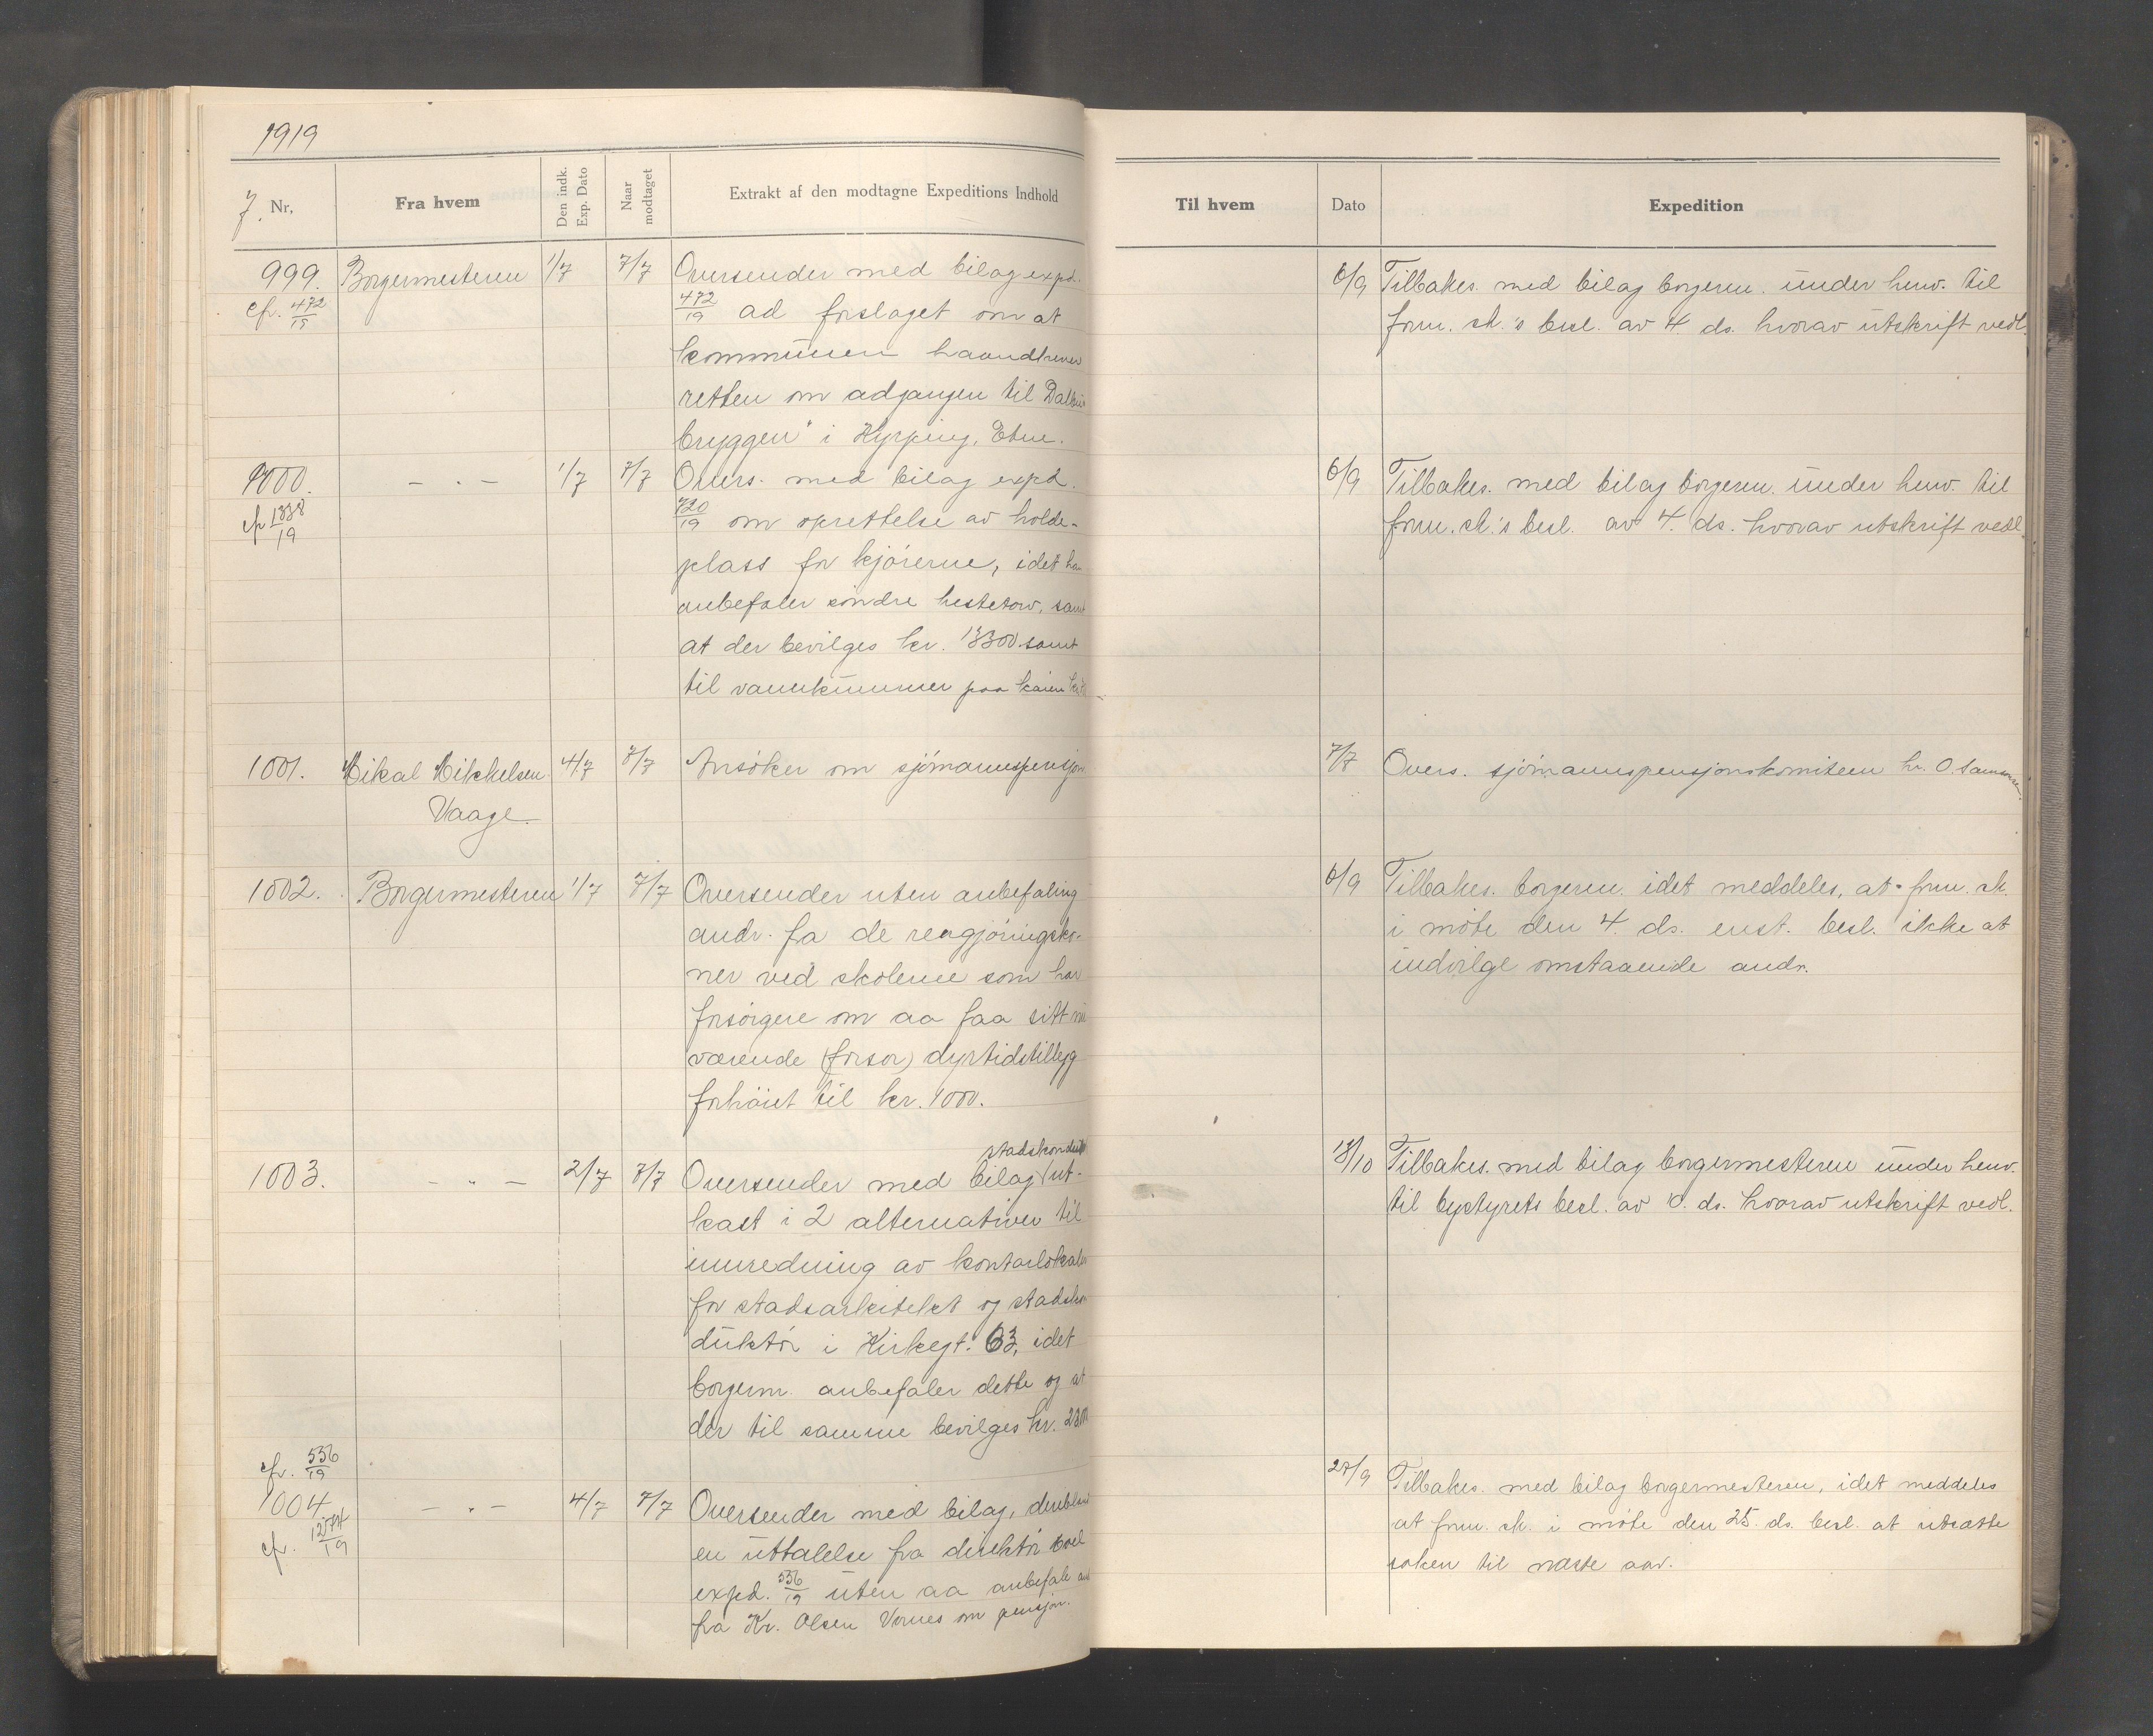 1919
J. Nr.
Fra hvem
Den indk. Exp. Dato
Naar modtaget
Extrakt af den modtagne Expeditions Indhold
999.
cfr. 472/19
Borgermesteren
1/7
7/7
Oversender med bilag expd.
472/19 ad forslaget om at
kommunen haandhever
retten om adgangen til
bryggen" i Kyrping, Etne.
1000.
cfr 1338/19
— " —
1/7
7/7
Overs. med bilag expd.
720/19 om oprettelse av holde-
plass for kjörerne, idet han
anbefaler söndre hestetorv, samt
at der bevilges kr. samt
til paa kaien
1001.
Mikal Mikkelsen
Vaage
4/7
7/7
Ansöker om sjömannspensjon
1002.
Borgermesteren
1/7
7/7
Oversender uten anbefaling
andr. fra de rengjöringsko-
ner ved skolerne som har
forsörgere om aa faa sitt nu
værende (forsor) dyrtidstillegg
forhöiet til kr. 1000.
1003.
— " —
2/7
7/7
stadskondukt
Oversender med bilag ut-
kast i 2 alternativer til
innredning av kontorlokaler
for stadsarkitekt og stadskon
duktör i Kirkegt. 63, idet
borgerm. anbefaler dette og at
der til samme bevilges kr.
cfr. 536/19
1004
cfr. 1277/19
— " —
4/7
7/7
Oversender med bilag, deriblandt
en uttalelse fra direktör
expd. 536/19 uten aa anbefale and
fra Kr. Olsen Vornes om pensjon.
Til hvem
Dato
Expedition
6/9
Tilbakes. med bilag borgerm. under henv. til
form. sk.'s besl. av 4 ds. hvorav utskrift vedl.
6/9
Tilbakes. med bilag borgerm. under henv. til
form. sk.'s besl. av 4. ds. hvorav utskrift vedl.
7/7
Overs. sjömannspensjonskomiteen hr. O. Samsonsen.
6/9
Tilbakes. borgerm. idet meddeles, at form. sk.
i möte den 4. ds. enst. besl. ikke at
indvilge omstaaende andr.
13/10
Tilbakes. med bilag borgermesteren under henv.
til bystyrets besl. av ds. hvorav utskrift vedl.
27/9
Tilbakes. med bilag borgermesteren, idet meddeles
at form. sk. i möte den 25. ds. besl. at utsætte
saken til næste aar.